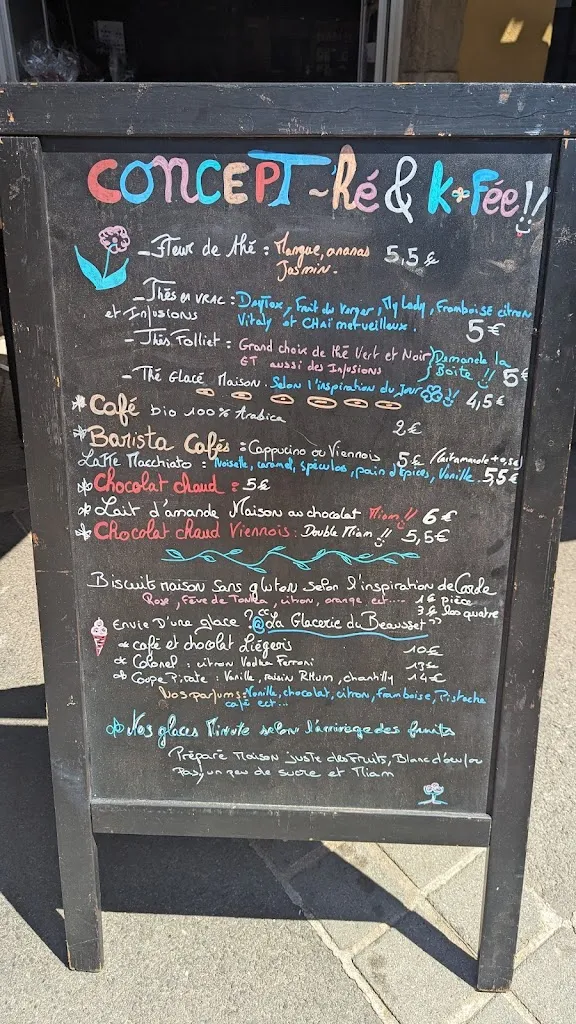 CONCEPT-Ré & K-Fée !!
- Fleur de thé : Mangue, ananas 5,5€
Jasmin.
- Thés en vrac : Daytox, Fruit du Verger, My Lady, Framboise citron
et Infusions Vitaly et CHAi merveilleux. 5€
- Thés Folliet : Grand choix de thé Vert et Noir } Demande la
ET aussi des Infusions Boite !! 5€
- Thé Glacé Maison. Selon l'inspiration du Jour !! 4,5€
Café bio 100% Arabica 2€
Barista Cafés : Cappucino ou Viennois 5€
Latte Macchiato : Noisette, caramel, spéculos, pain d'épices, Vanille 5,5€
Chocolat chaud : 5€
Lait d'amande Maison au chocolat Miam !! 6€
Chocolat chaud Viennois : Double Miam !! 5,5€
Biscuits maison sans gluten selon l'inspiration de
Rose, Fève de Tonka, citron, orange ect.... 1€ pièce
3€ les quatre
Envie D'une glace ? @ La Glacerie du Beausset"
café et chocolat Liégeois 10€
Colonel : citron Vodka Ferroni 13€
Coupe Pirate : Vanille, raisin RHum, chantilly 14€
Nos parfums : Vanille, chocolat, citron, framboise, Pistache
café ect...
Nos glaces Minute selon l'arrivage des fruits
Préparé Maison juste des Fruits, Blanc d'oeuf ou
Pas, un peu de sucre et Miam